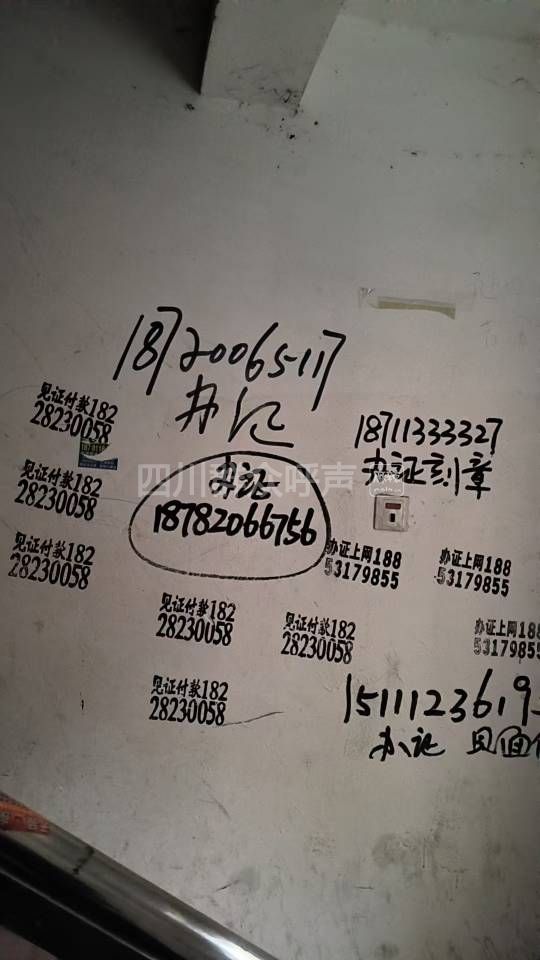 18720065117
办证
见证付款182
28230058
18711333327
办证刻章
见证付款182
28230058
办证
18782066756
见证付款182
28230058
办证上网188
53179855
办证上网188
53179855
见证付款182
28230058
见证付款182
28230058
办证上网188
53179855
见证付款182
28230058
1511123619
办证 见面
四川
呼声